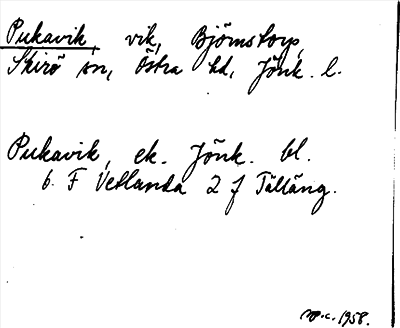 Pukavik, vik, Björnstorp,
Skirö sn, Östra hd, Jönk. l.
Pukavik, ek. Jönk. bl.
6. F Vetlanda 2 f Tälläng.
1958.